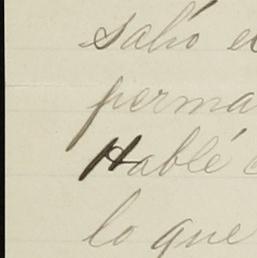 salió e
perma
Hablé c
lo que